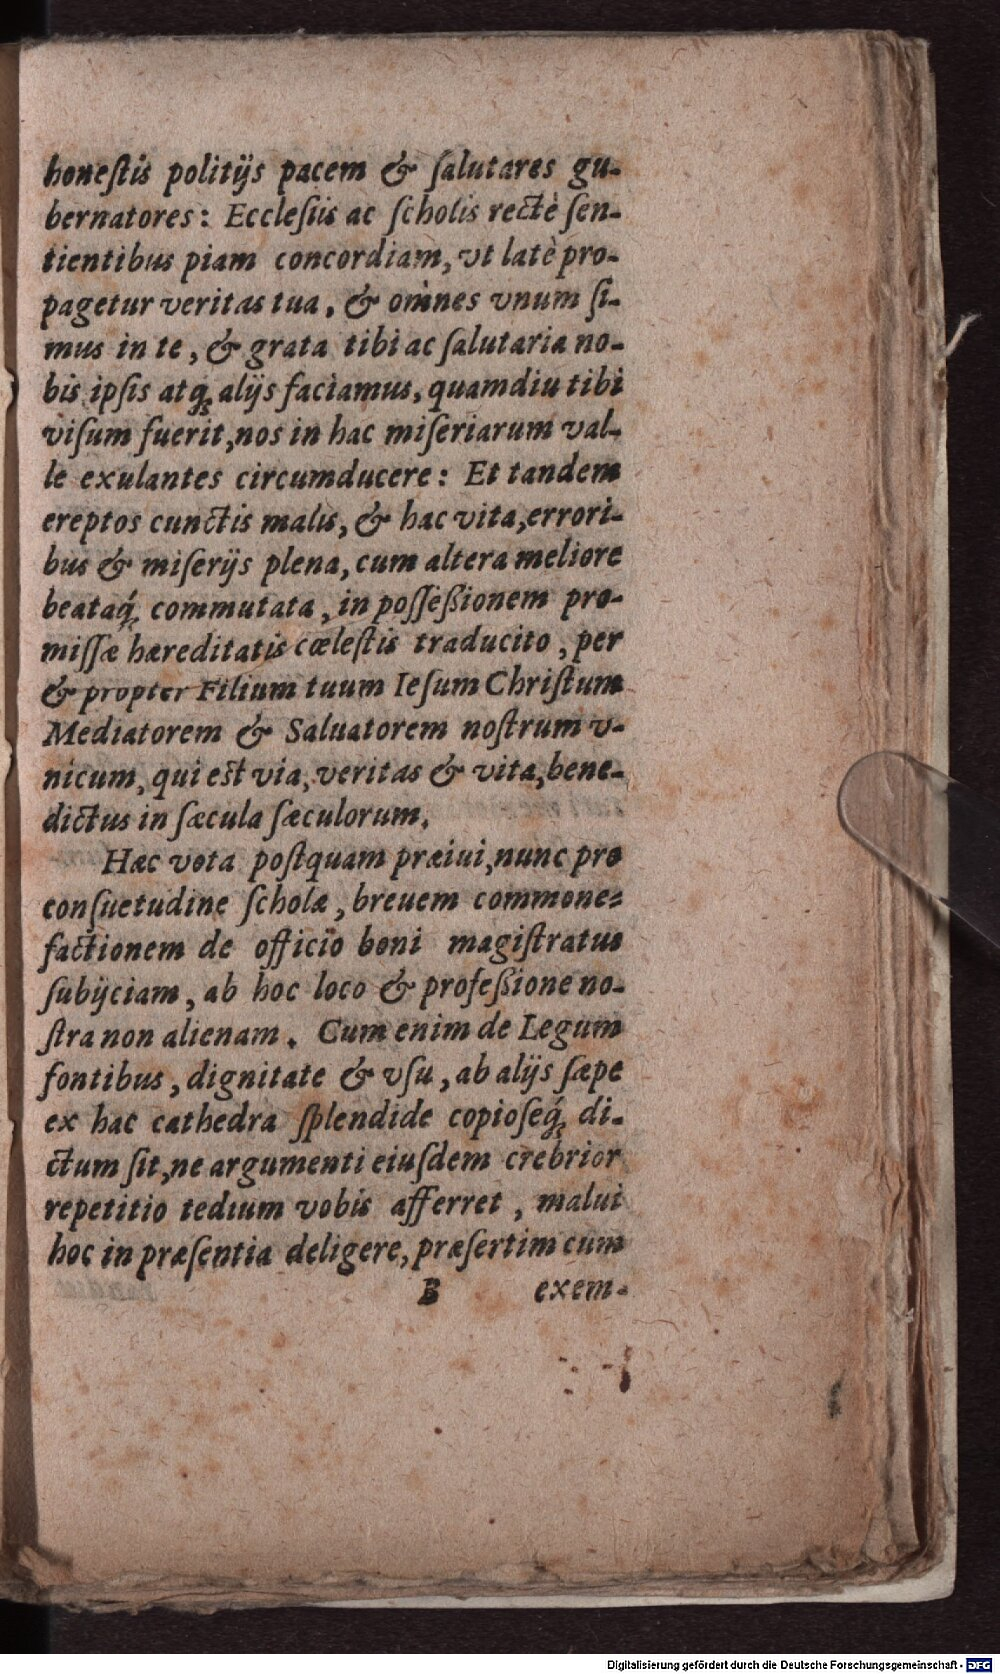 honeſtis politijs pacem & ſalutares gu-
bernatores: Eccleſiis ac ſcholis rectè ſen-
tientibus piam concordiam, vt latè pro-
pagetur veritas tua, & omnes vnum ſi-
mus in te, & grata tibi ac ſalutaria no-
bis ipſis atq́; alijs faciamus, quamdiu tibi
viſum fuerit, nos in hac miſeriarum val-
le exulantes circumducere: Et tandem
ereptos cunctis malis, & hac vita, errori-
bus & miſerijs plena, cum altera meliore
beataq́; commutata, in poſſeßionem pro-
miſſæ hæreditatis cœleſtis traducito, per
& propter Filium tuum Ieſum Chriſtum
Mediatorem & Saluatorem noſtrum v-
nicum, qui est via, veritas & vita, bene-
dictus in ſæcula ſæculorum.
Hæc vota poſtquam præiui, nunc pro
conſuetudine ſcholæ, breuem commone=
factionem de officio boni magiſtratus
ſubijciam, ab hoc loco & profeßione no-
ſtra non alienam. Cum enim de Legum
fontibus, dignitate & vſu, ab alijs ſæpe
ex hac cathedra ſplendide copioſeq́; di-
ctum ſit, ne argumenti eiuſdem crebrior
repetitio tedium vobis afferret, malui
hoc in præſentia deligere, præſertim cum
B exem-
Digitalisierung gefördert durch die Deutsche Forschungsgemeinschaft - DFG